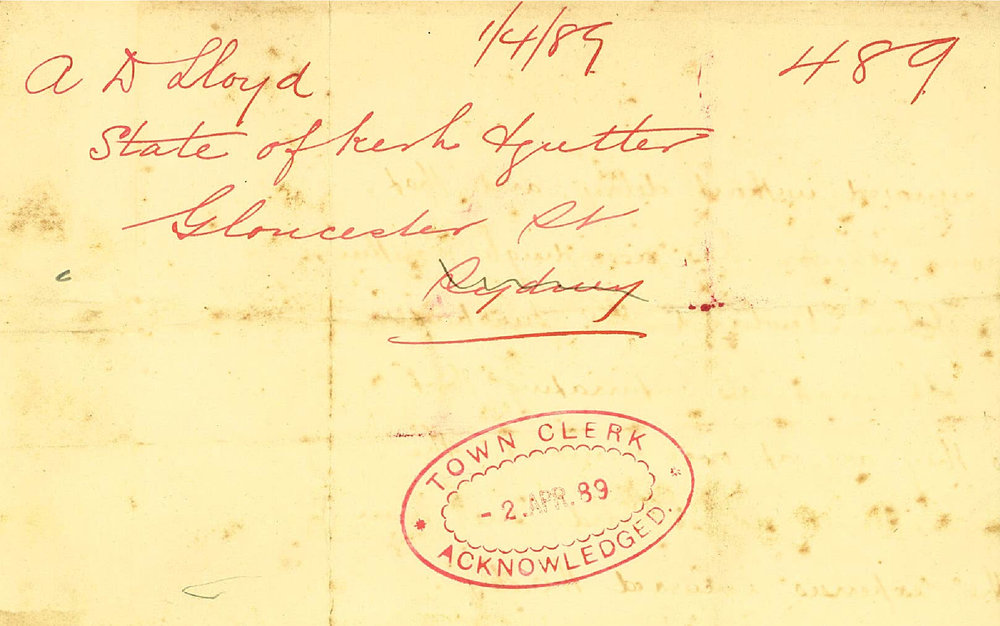 1/4/89
489
A D Lloyd
State of Kerb & gutter
Gloucester St
Sydney
TOWN CLERK
- 2. APR. 89
ACKNOWLEDGED.